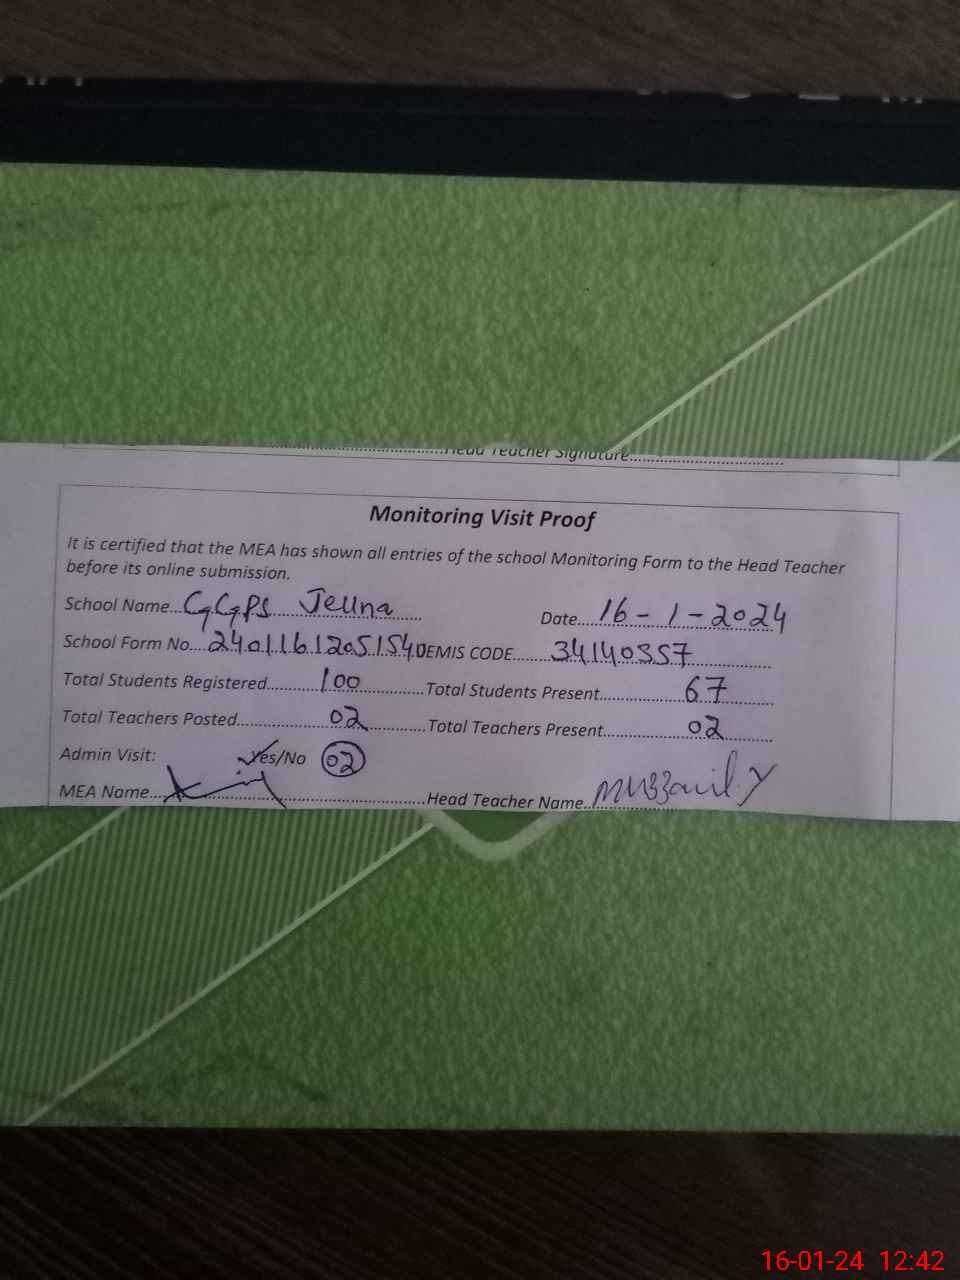 Head Teacher Signature
Monitoring Visit Proof
It is certified that the MEA has shown all entries of the school Monitoring Form to the Head Teacher
before its online submission.
School Name...GGPS Jeuna Date...16-1-2024
School Form No...24011612051540 EMIS CODE...34140357
Total Students Registered...100 Total Students Present...67
Total Teachers Posted...02 Total Teachers Present...02
Admin Visit: Yes/No 02
MEA Name... Head Teacher Name...
16-01-24 12:42